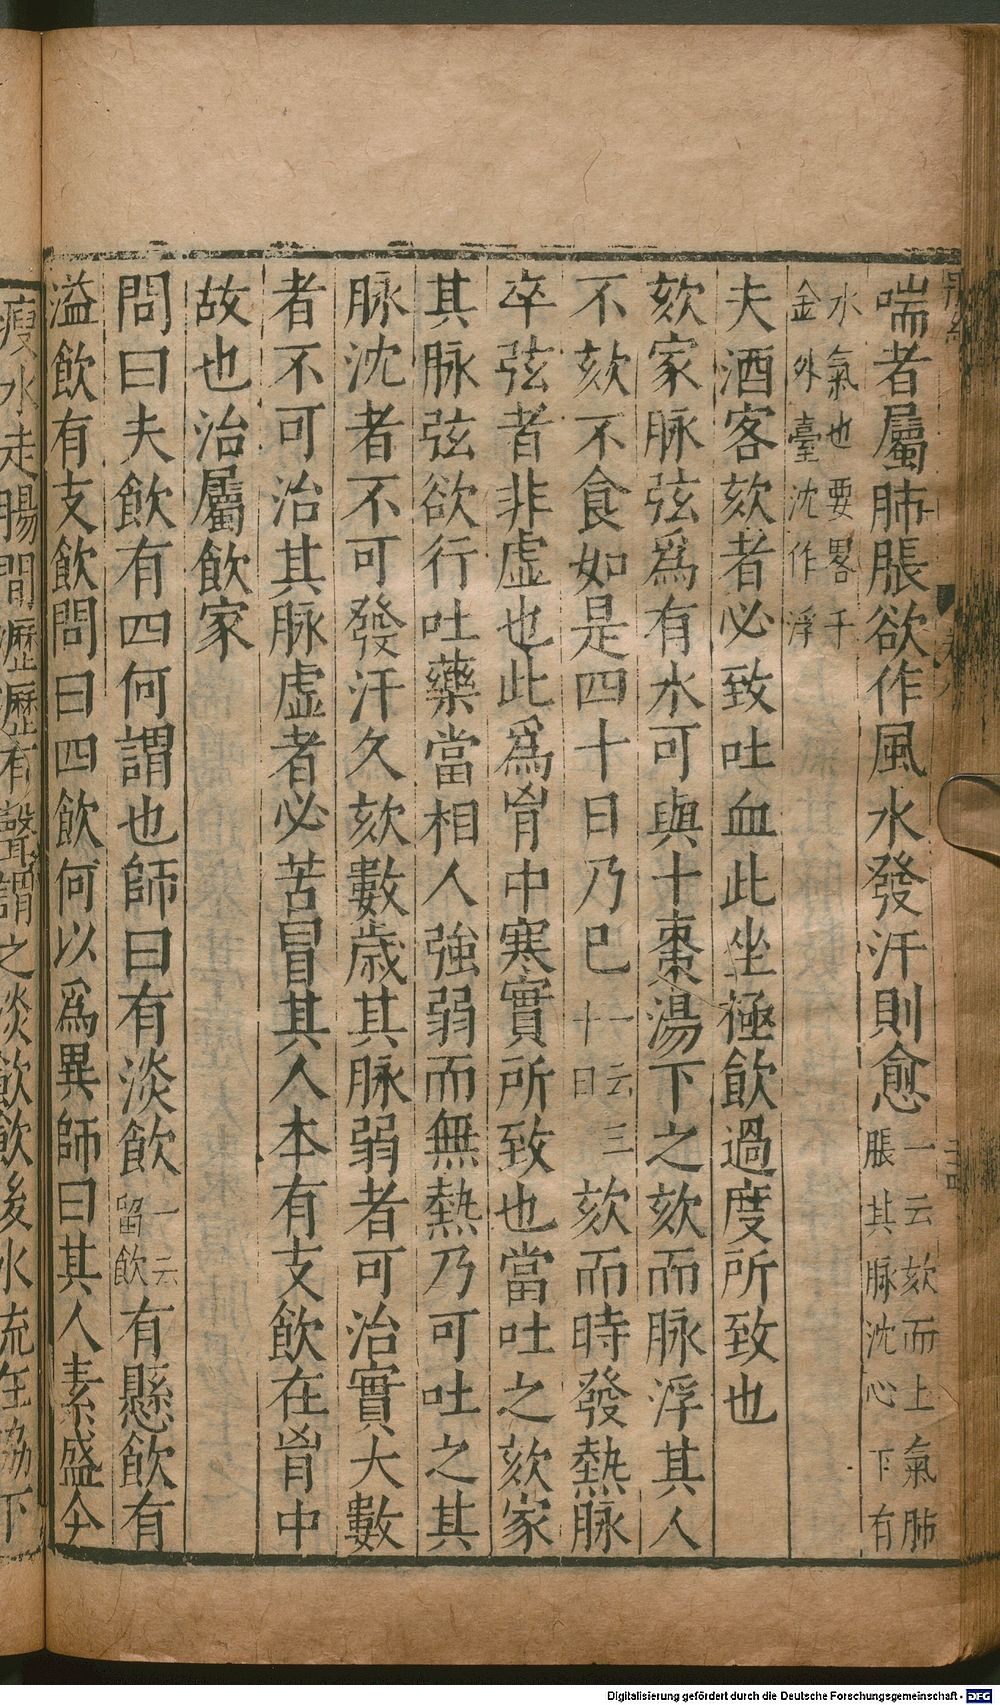 喘者屬肺脹欲作風水發汗則愈一云欬而上氣肺脹其脉沈心下有
水氣也要畧千金外臺沈作浮
夫酒客欬者必致吐血此坐極飲過度所致也
欬家脉弦爲有水可與十棗湯下之欬而脉浮其人
不欬不食如是四十日乃已一云三十日欬而時發熱脉
卒弦者非虛也此爲胷中寒實所致也當吐之欬家
其脉弦欲行吐藥當相人強弱而無熱乃可吐之其
脉沈者不可發汗久欬數歲其脉弱者可治實大數
者不可治其脉虛者必苦冒其人本有支飲在胷中
故也治屬飲家
問曰夫飲有四何謂也師曰有淡飲一云留飲有懸飲有
溢飲有支飲問曰四飲何以爲異師曰其人素盛今
瘦水走腸間瀝瀝有聲謂之淡飲飲後水流在脇下
Digitalisierung gefördert durch die Deutsche Forschungsgemeinschaft - DFG